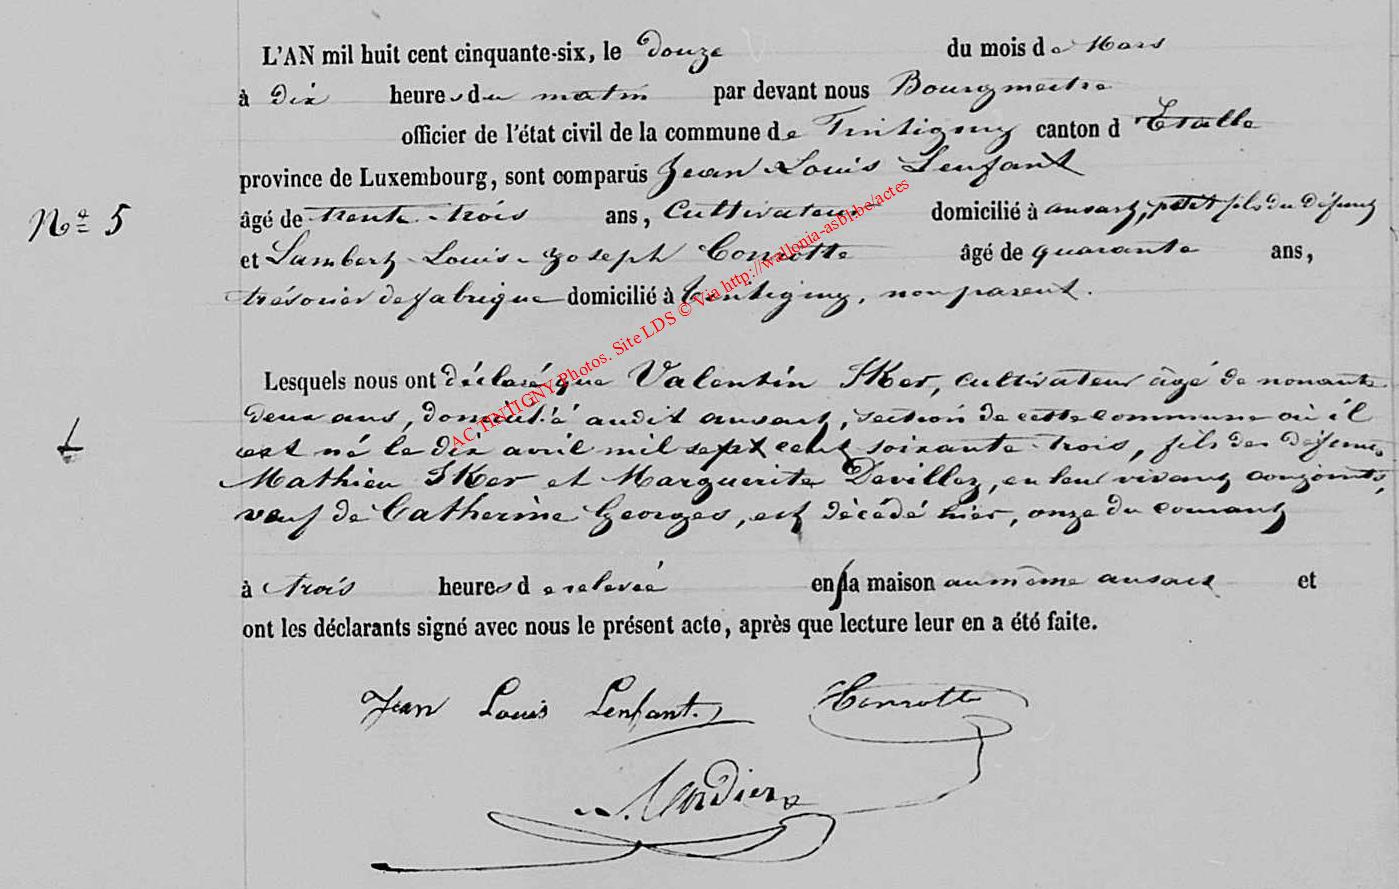 L'AN mil huit cent cinquante-six, le Douze du mois de Mars
à Dix heures du matin par devant nous Bourgmestre
officier de l'état civil de la commune de Tintigny canton d'Etalle
province de Luxembourg, sont comparus Jean Louis Lenfant
âgé de trente-trois ans, Cultivateur domicilié à ansart, petit fils du défunt
N° 5
et Lambert-Louis-Joseph Conrotte âgé de quarante ans,
trésorier de fabrique domicilié à Tintigny, non parent.
Lesquels nous ont déclaré que Valentin Iker, cultivateur âgé de nonante
deux ans, domicilié audit ansart, section de cette commune où il
est né le dix avril mil sept cent soixante-trois, fils des défunts
Mathieu Iker et Marguerite Devillez, en leur vivant conjoints,
veuf de Catherine Georges, est décédé hier, onze du courant
à trois heures de relevée en sa maison au même ansart et
ont les déclarants signé avec nous le présent acte, après que lecture leur en a été faite.
Jean Louis Lenfant. Conrotte
AC TINTIGNY Photos. Site LDS © Via http://wallonia-asbl.be/actes